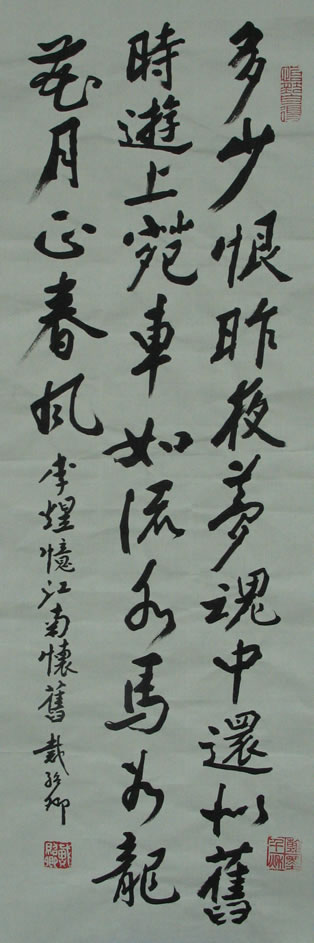 多少恨昨夜夢魂中還似舊
時遊上苑車如流水馬如龍
花月正春風
李煜憶江南懷舊 戴